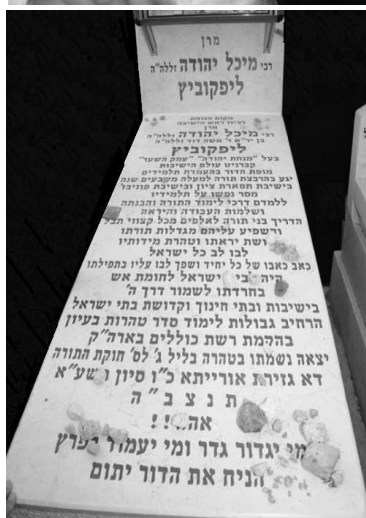 מרן
רבי מיכל יהודה זללה"ה
ליפקוביץ
מקום מנוחת
רבינו ראש הישיבה
מרן
רבי מיכל יהודה זללה"ה
בן ר' משה דוד זללה"ה
ליפקוביץ
בעל "מנחת יהודה" "עמק השער"
קברניט עולם הישיבות
מופת הדור בהעמדת תלמידים
יגע בהרבצת תורה למעלה משבעים שנה
בישיבת תפארת ציון ובישיבת פוניבז'
מסר נפשו על תלמידיו
ללמדם דרכי לימוד התורה והבנתה
ושלמות העבודה והיראה
הדריך בני תורה לאלפים מכל קצווי תבל
והשפיע עליהם מגדלות תורתו
יראתו וטהרת מידותיו
לבו לב כל ישראל
כאב כאבו של כל יחיד ושפך לבו עליו בתפילתו
היה ישראל לחומת אש
בחרדתו לשמור דרך ה'
בישיבות ובתי חינוך וקדושת בתי ישראל
הרחיב גבולות לימוד סדר טהרות בעיון
בהקמת רשת כוללים בארה"ק
יצאה נשמתו בטהרה בליל ג' לס' חוקת התורה
דא גזירת אורייתא כ"ו סיון תשע"א
ת נ צ ב " ה
!!
מי יגדור גדר ומי יעמוד בפרץ
הניח את הדור יתום